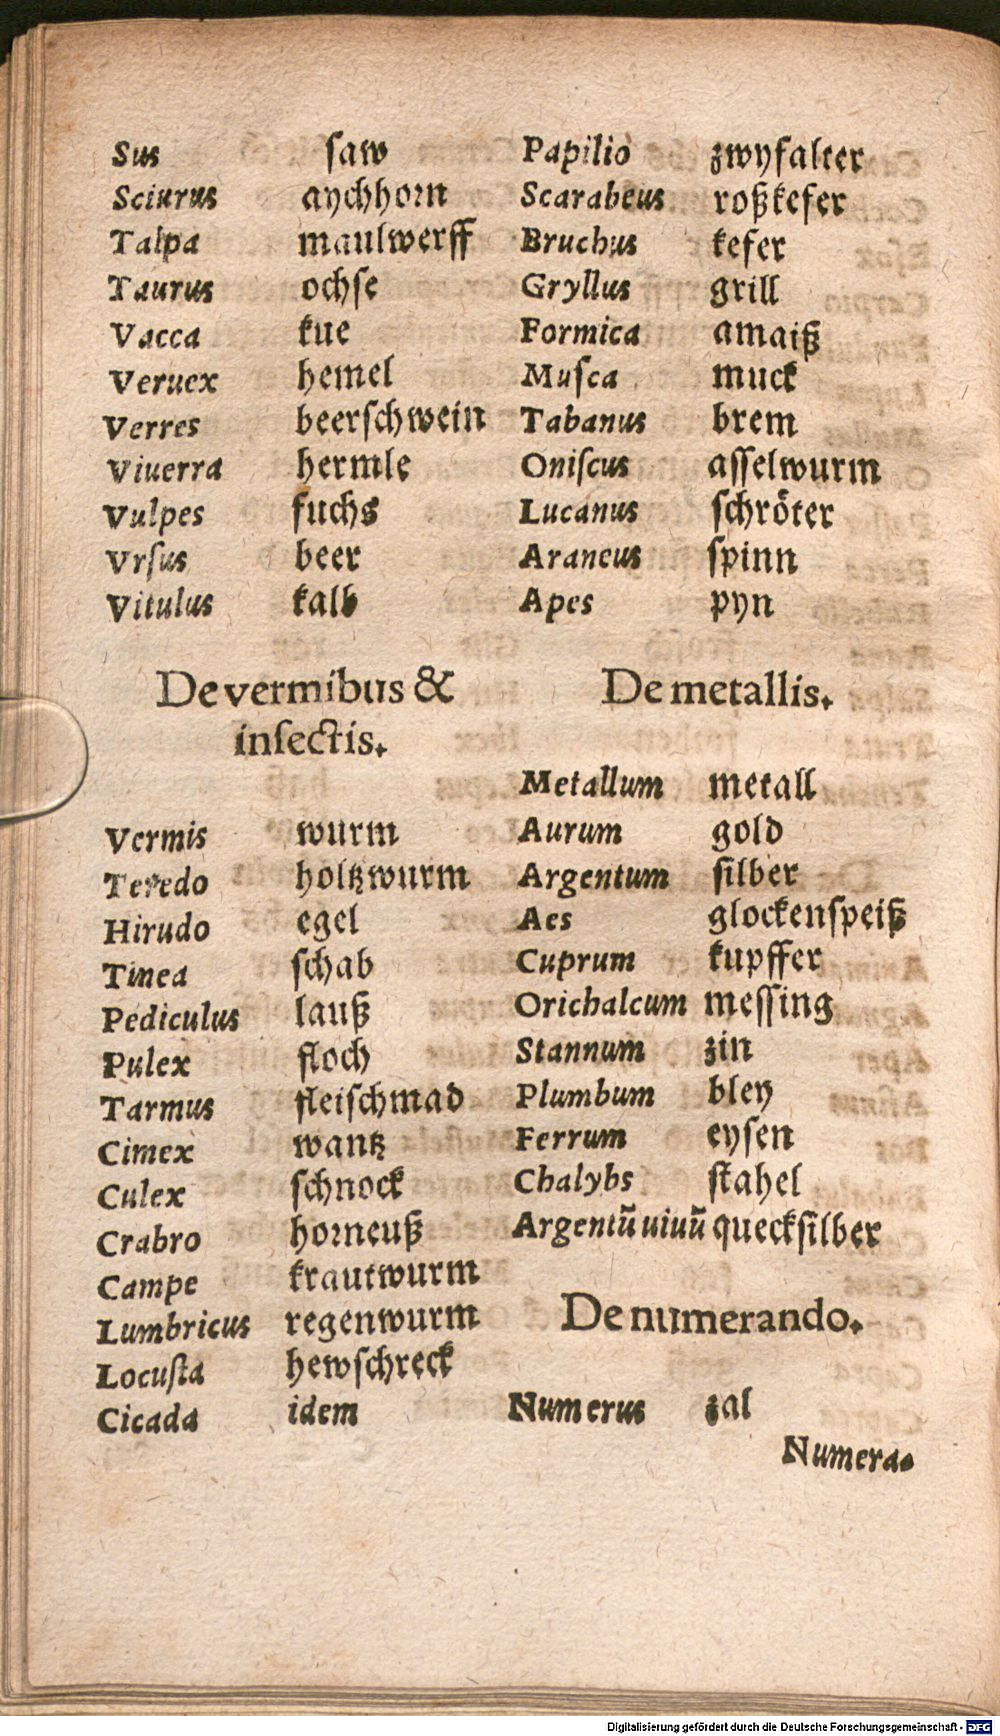 Sus saw
Sciurus aychhorn
Talpa maulwerff
Taurus ochse
Vacca kue
Veruex hemel
Verres beerschwein
Viuerra hermle
Vulpes fuchs
Vrſus beer
Vitulus kalb
De vermibus &
insectis.
Vermis wurm
Teredo holtzwurm
Hirudo egel
Tinea schab
Pediculus lauß
Pulex floch
Tarmus fleischmad
Cimex wantz
Culex schnock
Crabro horneuß
Campe krautwurm
Lumbricus regenwurm
Locuſta hewschreck
Cicada idem
Papilio zwyfalter
Scarabeus roßkefer
Bruchus kefer
Gryllus grill
Formica amaiß
Muſca muck
Tabanus brem
Oniſcus asselwurm
Lucanus schröter
Araneus spinn
Apes pyn
De metallis.
Metallum metall
Aurum gold
Argentum silber
Aes glockenspeiß
Cuprum kupffer
Orichalcum messing
Stannum zin
Plumbum bley
Ferrum eysen
Chalybs stahel
Argentũ uiuũ quecksilber
De numerando.
Numerus zal
Numera-
Digitalisierung gefördert durch die Deutsche Forschungsgemeinschaft - DFG